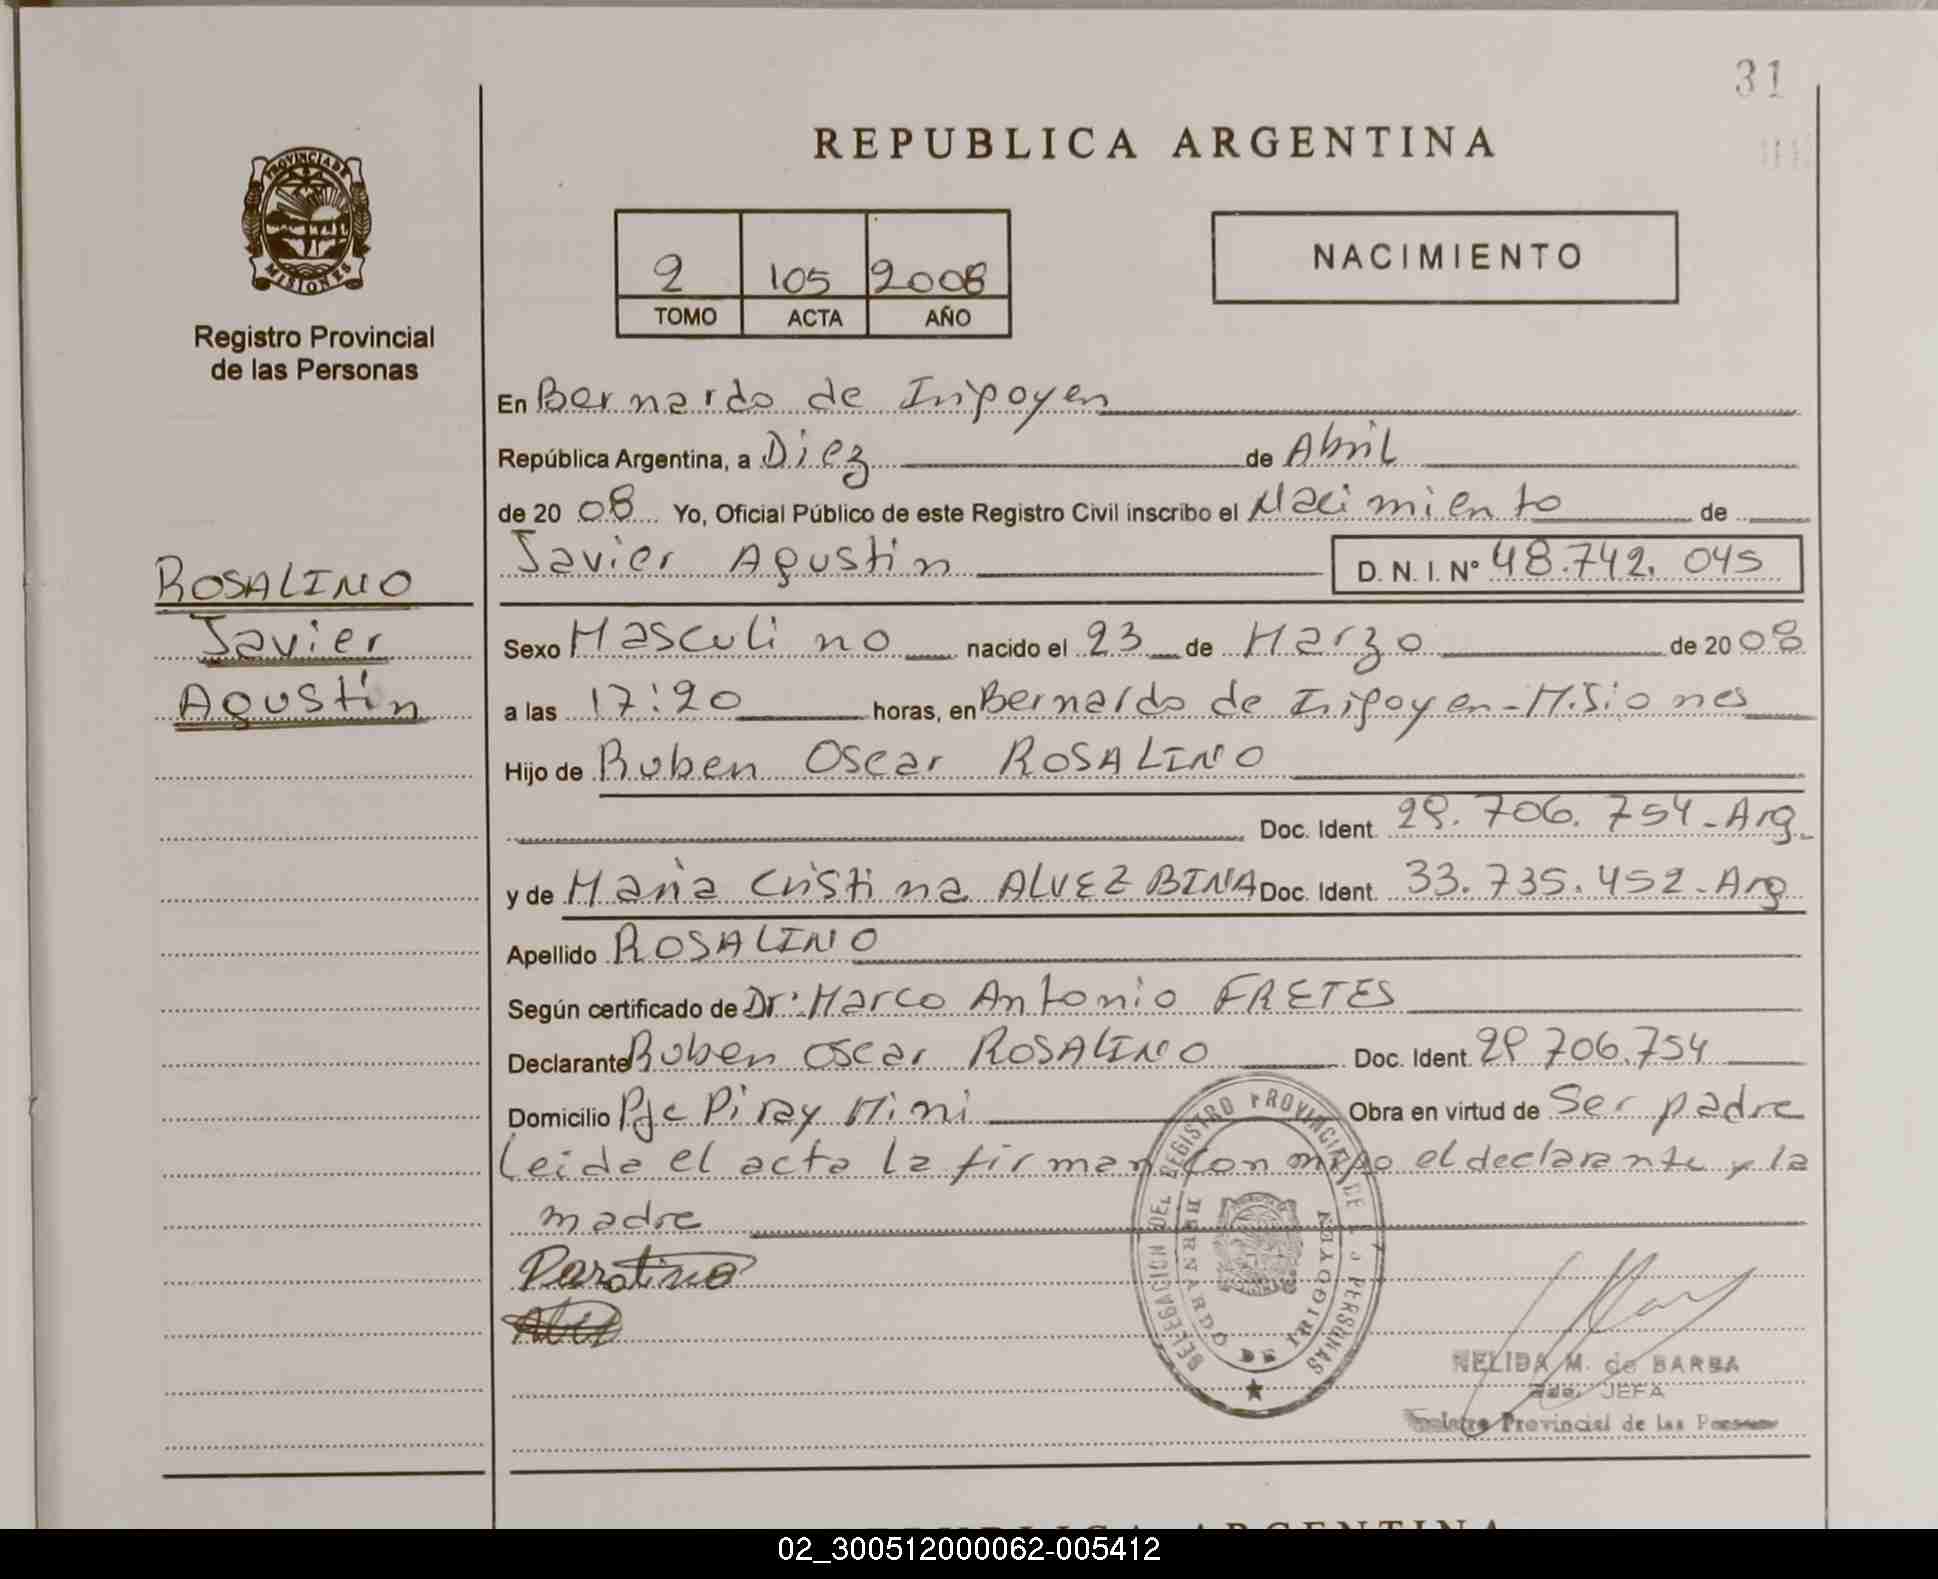 31
REPUBLICA ARGENTINA
PROVINCIA DE
MISIONES
Registro Provincial
de las Personas
2 105 2008
TOMO ACTA AÑO
NACIMIENTO
En Bernardo de Irigoyen
República Argentina, a Diez de Abril
de 20 08 Yo, Oficial Público de este Registro Civil inscribo el Nacimiento de
Javier Agustin D. N. I. Nº 48.742.045
ROSALINO
Javier
Agustin
Sexo Masculino nacido el 23 de Marzo de 20 08
a las 17:20 horas, en Bernardo de Irigoyen-Misiones
Hijo de Ruben Oscar ROSALINO
Doc. Ident. 29.706.754-Arg.
y de Maria Cristina ALVEZ BINA Doc. Ident. 33.735.452-Arg
Apellido ROSALINO
Según certificado de Dr: Marco Antonio FRETES
Declarante Ruben Oscar ROSALINO Doc. Ident. 29 706.754
Domicilio Pje Piray Mini Obra en virtud de Ser padre
Leida el acta la firman con migo el declarante y la
madre
DELEGACION DEL REGISTRO PROVINCIAL DE LAS PERSONAS
BERNARDO DE IRIGOYEN
NELIDA M. de BARBA
JEFA
Registro Provincial de las Personas
REPUBLICA ARGENTINA
02_300512000062-005412